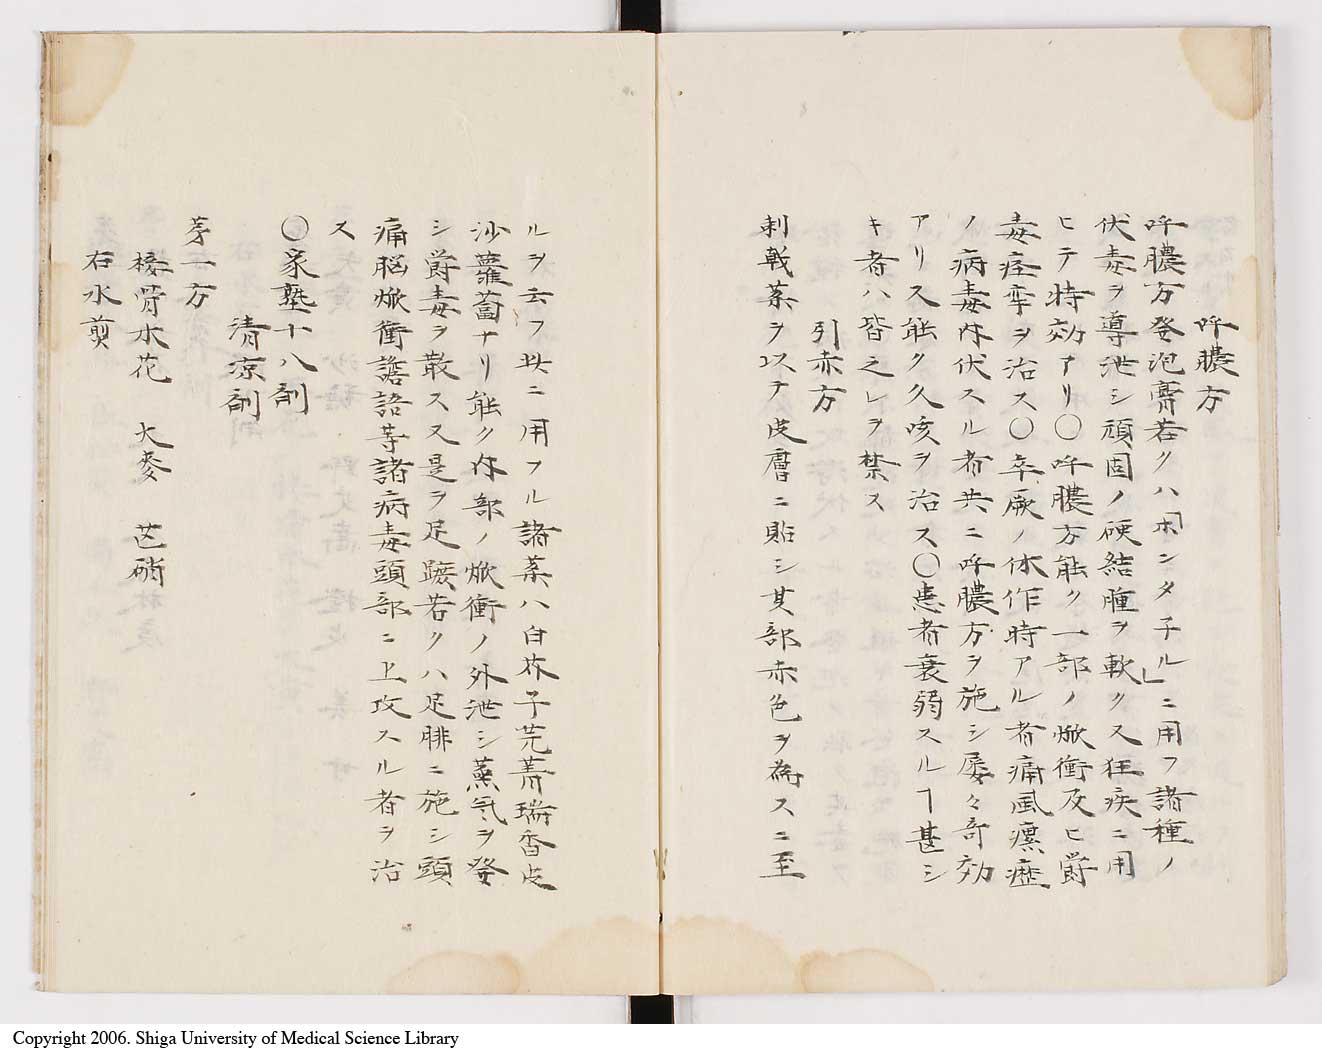 呼膿方
呼膿方発泡膏若クハ「ホンタ子ル」ニ用フ諸種ノ
伏毒ヲ導泄シ頑固ノ硬結腫ヲ軟クス狂疾ニ用
ヒテ特効アリ〇呼膿方能ク一部ノ焮衝及ヒ欝
毒痙攣ヲ治ス〇卒厥ノ休作時アル者痛風瘰癧
ノ病毒沈伏スル者共ニ呼膿方ヲ施シ屡々奇効
アリス能ク久咳ヲ治ス〇患者衰弱スルヿ甚シ
キ者ハ皆之レヲ禁ス
引赤方
刺戟薬ヲ以テ皮膚ニ貼シ其部赤色ヲ為スニ至
ルヲ云フ共ニ用フル諸薬ハ白芥子芫菁瑞香皮
沙蘿蔔ナリ能ク体部ノ焮衝ノ外泄シ蒸気ヲ発
シ欝毒ヲ散ス又是ヲ足蹠若クハ足腓ニ施シ頭
痛脳焮衝譫語等諸病毒頭部ニ上攻スル者ヲ治
ス
〇象塾十八剤
清凉剤
第一方
接骨木花 大麦 芒硝
右水煎
Copyright 2006. Shiga University of Medical Science Library